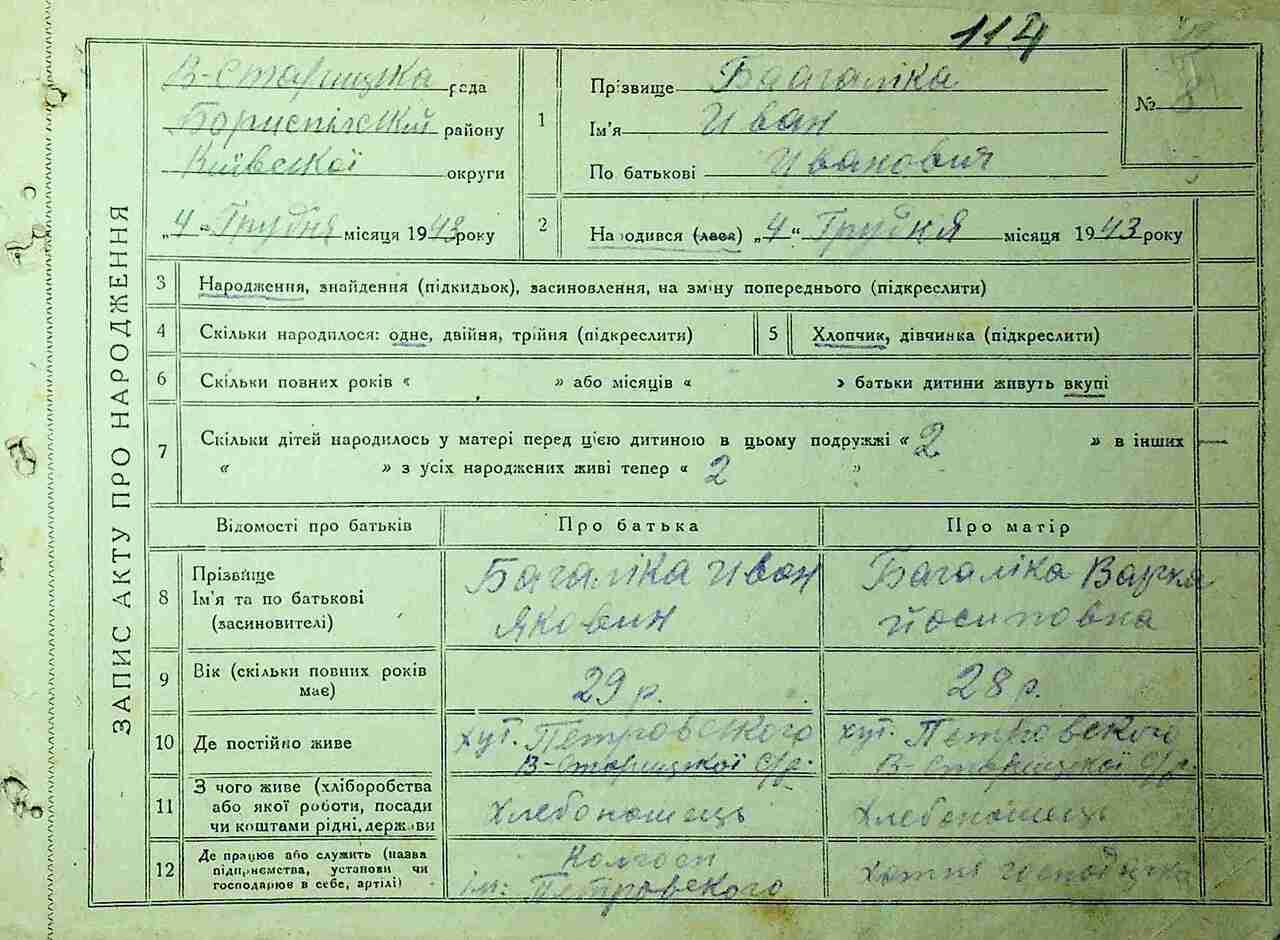 114
В-Старицка рада
Бориспільский району
Київської округи
„4“ Грудня місяця 1943 року
ЗАПИС АКТУ ПРО НАРОДЖЕННЯ
1 Прізвище Багаліка
Ім'я Иван
По батькові Иванович
№ 8
2 Народився (лася) „4“ Грудня місяця 1943 року
3 Народження, знайдення (підкидьок), засиновлення, на зміну попереднього (підкреслити)
4 Скільки народилося: одне, двійня, трійня (підкреслити) 5 Хлопчик, дівчинка (підкреслити)
6 Скільки повних років « » або місяців « » батьки дитини живуть вкупі
7 Скільки дітей народилось у матері перед цією дитиною в цьому подружжі « 2 » в інших —
« » з усіх народжених живі тепер « 2 »
Відомості про батьків Про батька Про матір
8 Прізвище
Ім'я та по батькові
(засиновителі)
Багаліка Иван
Якович
Багаліка Варка
Йосиповна
9 Вік (скільки повних років
має)
29 р. 28 р.
10 Де постійно живе
хут. Петровского
В-Старицкої с/р.
хут. Петровского
В-Старицкої с/р.
11 З чого живе (хліборобства
або якої роботи, посади
чи коштами рідні, держави
Хлебопашець Хлебопашець
12 Де працює або служить (назва
підприємства, установи чи
господарює в себе, артілі)
Колгосп
ім: Петровского